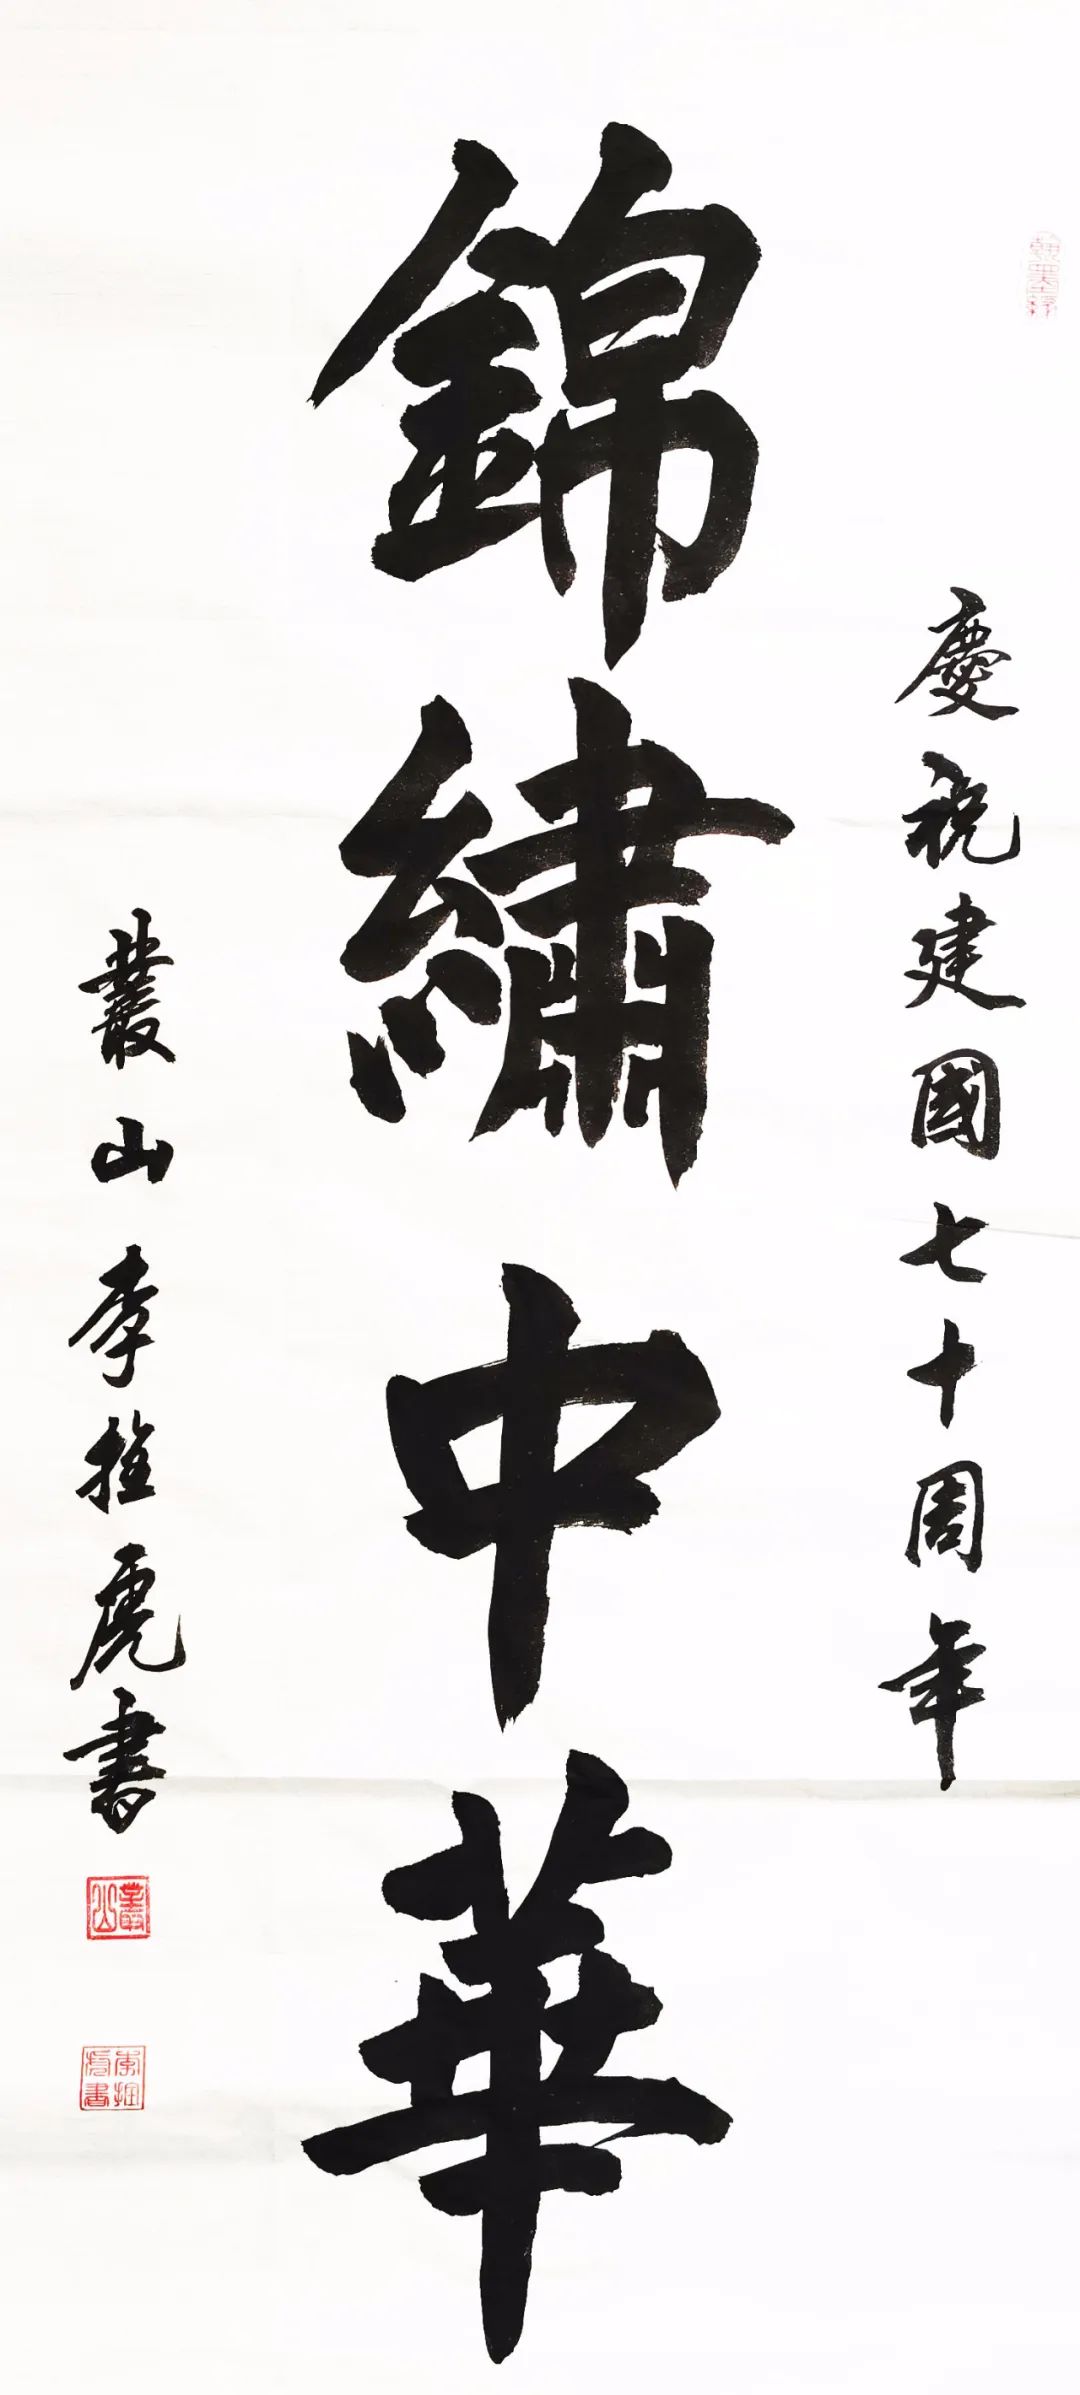 慶祝建國七十周年
錦繡中華
叢山李拴虎書
叢山